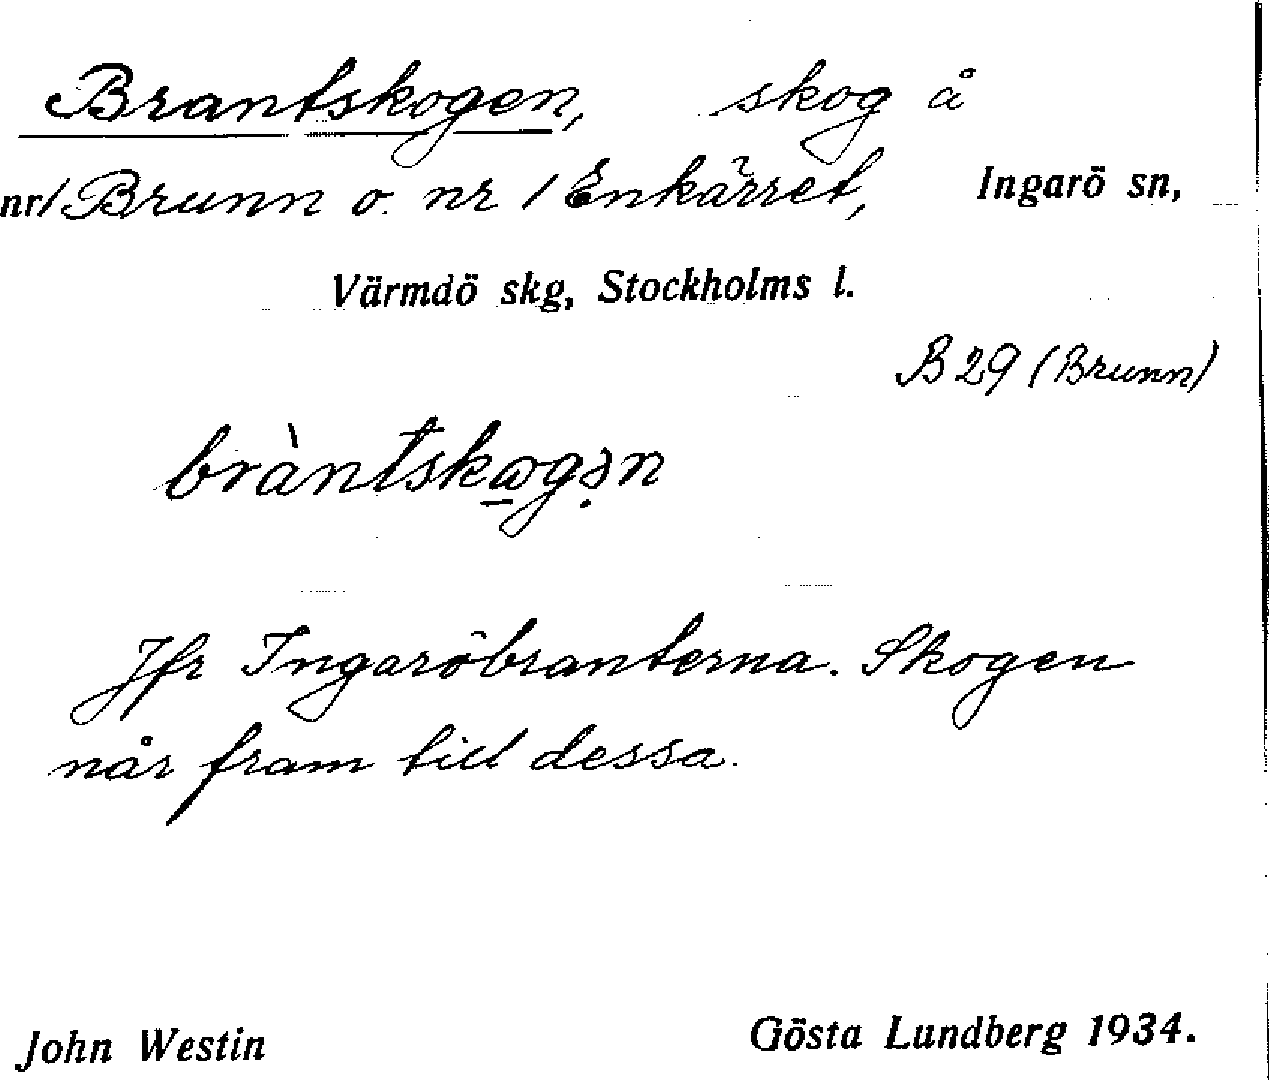 Brantskogen, skog å
nr 1 Brunn o. nr 1 Enkärret, Ingarö sn,
Värmdö skg, Stockholms l.
B 29 (Brunn)
bràntskω̲gə̣n
Jfr Ingaröbranterna. Skogen
når fram till dessa.
John Westin Gösta Lundberg 1934.